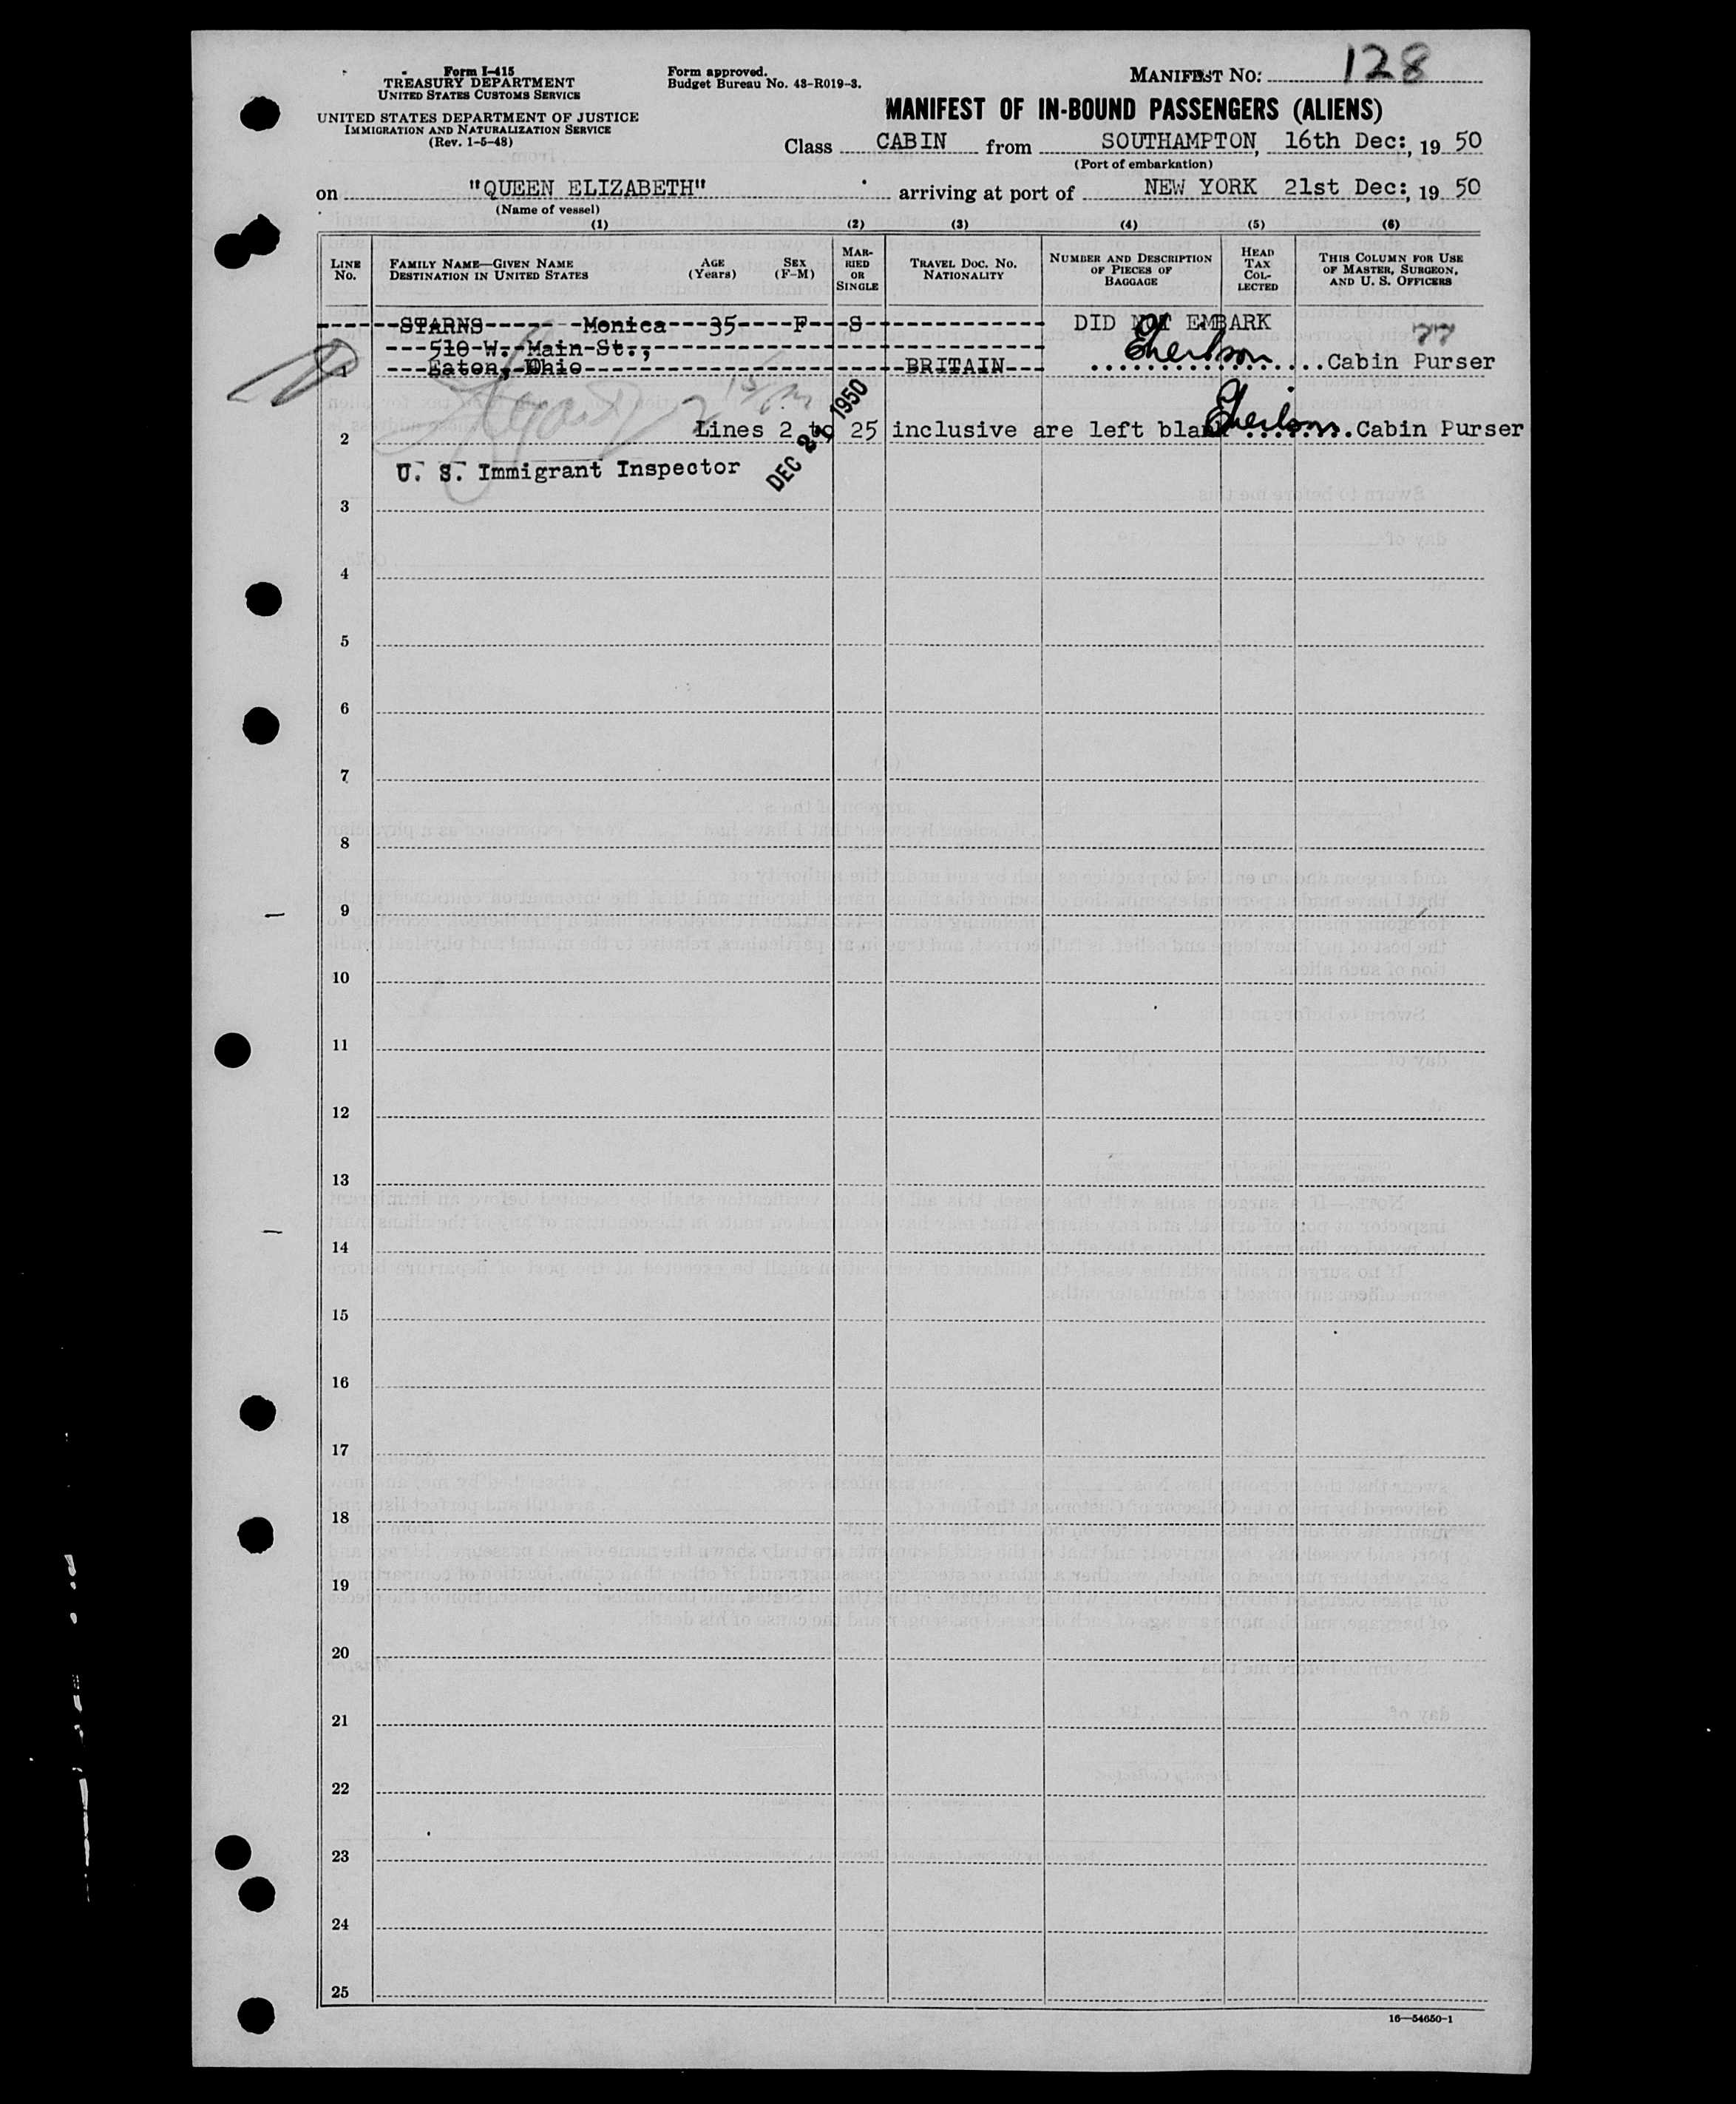 Form I-415
TREASURY DEPARTMENT
UNITED STATES CUSTOMS SERVICE
UNITED STATES DEPARTMENT OF JUSTICE
IMMIGRATION AND NATURALIZATION SERVICE
(Rev. 1-5-48)
Form approved.
Budget Bureau No. 43-R019-3.
MANIFEST NO: 128
MANIFEST OF IN-BOUND PASSENGERS (ALIENS)
Class CABIN from SOUTHAMPTON, 16th Dec:, 19 50
(Port of embarkation)
on "QUEEN ELIZABETH" arriving at port of NEW YORK 21st Dec:, 19 50
(Name of vessel)
(1) (2) (3) (4) (5) (6)
LINE NO.
FAMILY NAME—GIVEN NAME
DESTINATION IN UNITED STATES
AGE (Years)
SEX (F-M)
MARRIED OR SINGLE
TRAVEL DOC. NO.
NATIONALITY
NUMBER AND DESCRIPTION OF PIECES OF BAGGAGE
HEAD TAX COLLECTED
THIS COLUMN FOR USE OF MASTER, SURGEON, AND U. S. OFFICERS
STARNS Monica 35 F S DID NOT EMBARK 77
510 W. Main St.,
1 Eaton, Ohio BRITAIN Cabin Purser
2 Lines 2 to 25 inclusive are left blank Cabin Purser
U. S. Immigrant Inspector
DEC 21 1950
3
4
5
6
7
8
9
10
11
12
13
14
15
16
17
18
19
20
21
22
23
24
25
16—54650-1